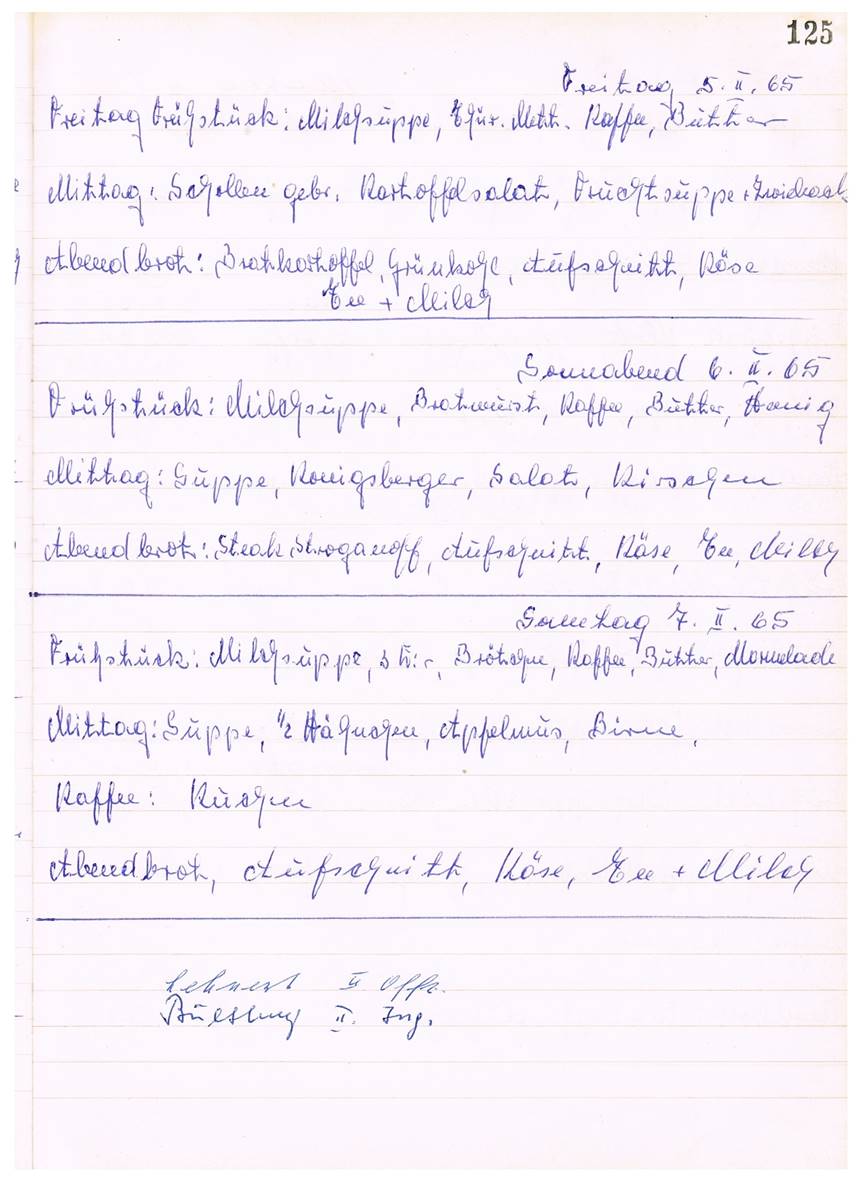 125
Freitag 5. II. 65
Freitag Frühstück: Milchsuppe, Thür. Mett. Kaffee, Butter
Mittag: Schollen gebr. Kartoffelsalat, Fruchtsuppe + Zwieback
Abendbrot: Bratkartoffel, Grünkohl, Aufschnitt, Käse
Tee + Milch
Sonnabend 6. II. 65
Frühstück: Milchsuppe, Bratwurst, Kaffee, Butter, Honig
Mittag: Suppe, Konigsberger, Salat, Kirschen
Abendbrot: Steak Stroganoff, Aufschnitt, Käse, Tee, Milch
Sonntag 7. II. 65
Frühstück: Milchsuppe, Brötchen, Kaffee, Butter, Marmelade
Mittag: Suppe, 1/2 Hähnchen, Apfelmus, Birne.
Kaffee: Kuchen
Abendbrot, Aufschnitt, Käse, Tee + Milch
Lehnert II Offz.
II. Ing.